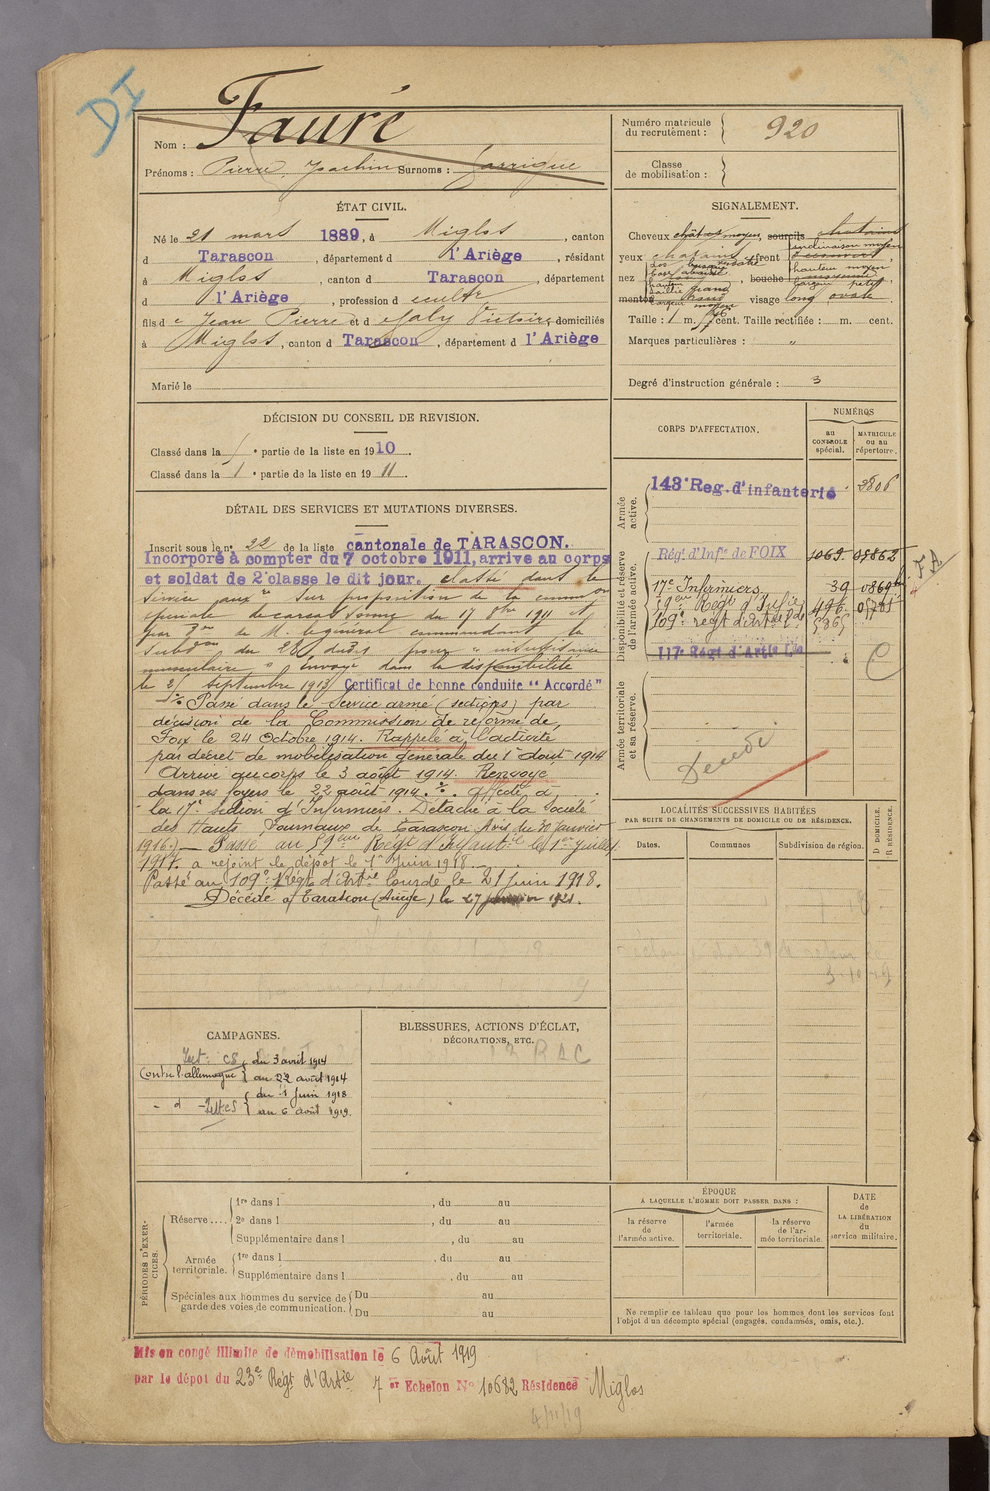 DI
Nom : Fauré
Prénoms : Pierre, Joachim Surnoms : Garrigue
Numéro matricule du recrutement : 920
Classe de mobilisation :
ÉTAT CIVIL.
Né le 21 mars 1889, à Miglos, canton
d Tarascon, département d l'Ariège, résidant
à Miglos, canton d Tarascon, département
d l'Ariège, profession d cultr
fils de Jean Pierre et de Galy Victoire domiciliés
à Miglos, canton d Tarascon, département d l'Ariège
Marié le
SIGNALEMENT.
Cheveux châtain moyen, sourcils chatains
yeux chatains front découvert, inclinaison moyen
hauteur moyen
largeur petit
nez Dos busqué
Base abaissée
hauteur
saillie grand
largeur moyen
bouche moyenne
menton visage long ovale
Taille : 1 m. cent. Taille rectifiée : m. cent.
Marques particulières : "
Degré d'instruction générale : 3
DÉCISION DU CONSEIL DE REVISION.
Classé dans la 1e partie de la liste en 1910
Classé dans la 1e partie de la liste en 1911.
DÉTAIL DES SERVICES ET MUTATIONS DIVERSES.
Inscrit sous le n° 22 de la liste cantonale de TARASCON.
Incorporé à compter du 7 octobre 1911, arrive au corps
et soldat de 2e classe le dit jour. classé dans le
service auxre sur proposition de la common
spéciale de carcassonne du 17 9bre 1911 et
par Don de M. le général commandant la
subdon du dit pour "insuffisance
musculaire" envoyé dans la disponibilité
le 25 septembre 1913 Certificat de bonne conduite "Accordé"
Passé dans le Service armé (sections) par
décision de la Commission de réforme de
Foix le 24 Octobre 1914. Rappelé à l'activité
par décret de mobilisation générale du 1er août 1914
Arrivé au corps le 3 août 1914. Renvoyé
dans ses foyers le 22 août 1914. Affecté à
la 17e Section d'Infirmiers. Détaché à la Société
des Hauts Fourneaux de Tarascon Avis du 30 Janvier
1916. — Passé au 59ème Régt d'Infanterie le 1er Juillet
1917. a rejoint le dépôt le 1er Juin 1918.
Passé au 109e Régt d'Artie lourde le 21 Juin 1918.
Décédé à Tarascon (Ariège) le 27 janvier 1921.
CORPS D'AFFECTATION.
NUMÉROS
au CONTROLE spécial.
MATRICULE ou au répertoire.
Armée active.
143e Reg. d'infanterie 3806
Disponibilité et réserve de l'armée active.
Régt d'Infie de FOIX 1069 05862
17e Infirmiers 39 0869
59e Régt d'Infie 496
109e regt d'Artie Lde 5965
117e Régt d'Artie Lde
C
Armée territoriale et sa réserve.
Décédé
LOCALITÉS SUCCESSIVES HABITÉES
PAR SUITE DE CHANGEMENTS DE DOMICILE OU DE RÉSIDENCE.
Dates. Communes Subdivision de région. D DOMICILE. R RÉSIDENCE.
CAMPAGNES.
Int: CS du 3 août 1914
Contre l'allemagne au 22 août 1914
- d - Int: CS du 1 Juin 1918
au 6 août 1919.
BLESSURES, ACTIONS D'ÉCLAT,
DÉCORATIONS, ETC.
PÉRIODES D'EXERCICES.
Réserve .... 1re dans l , du au
2e dans l , du au
Supplémentaire dans l , du au
Armée territoriale. 1re dans l , du au
Supplémentaire dans l , du au
Spéciales aux hommes du service de garde des voies de communication. Du au
Du au
ÉPOQUE
A LAQUELLE L'HOMME DOIT PASSER DANS :
la réserve de l'armée active.
l'armée territoriale.
la réserve de l'armée territoriale.
DATE de LA LIBÉRATION du service militaire.
Ne remplir ce tableau que pour les hommes dont les services font
l'objet d'un décompte spécial (engagés, condamnés, omis, etc.).
Mis en congé illimité de démobilisation le 6 Août 1919
par le dépôt du 23e Régt d'Artie 7er Echelon N° 10682 Résidence Miglos
4/10/19